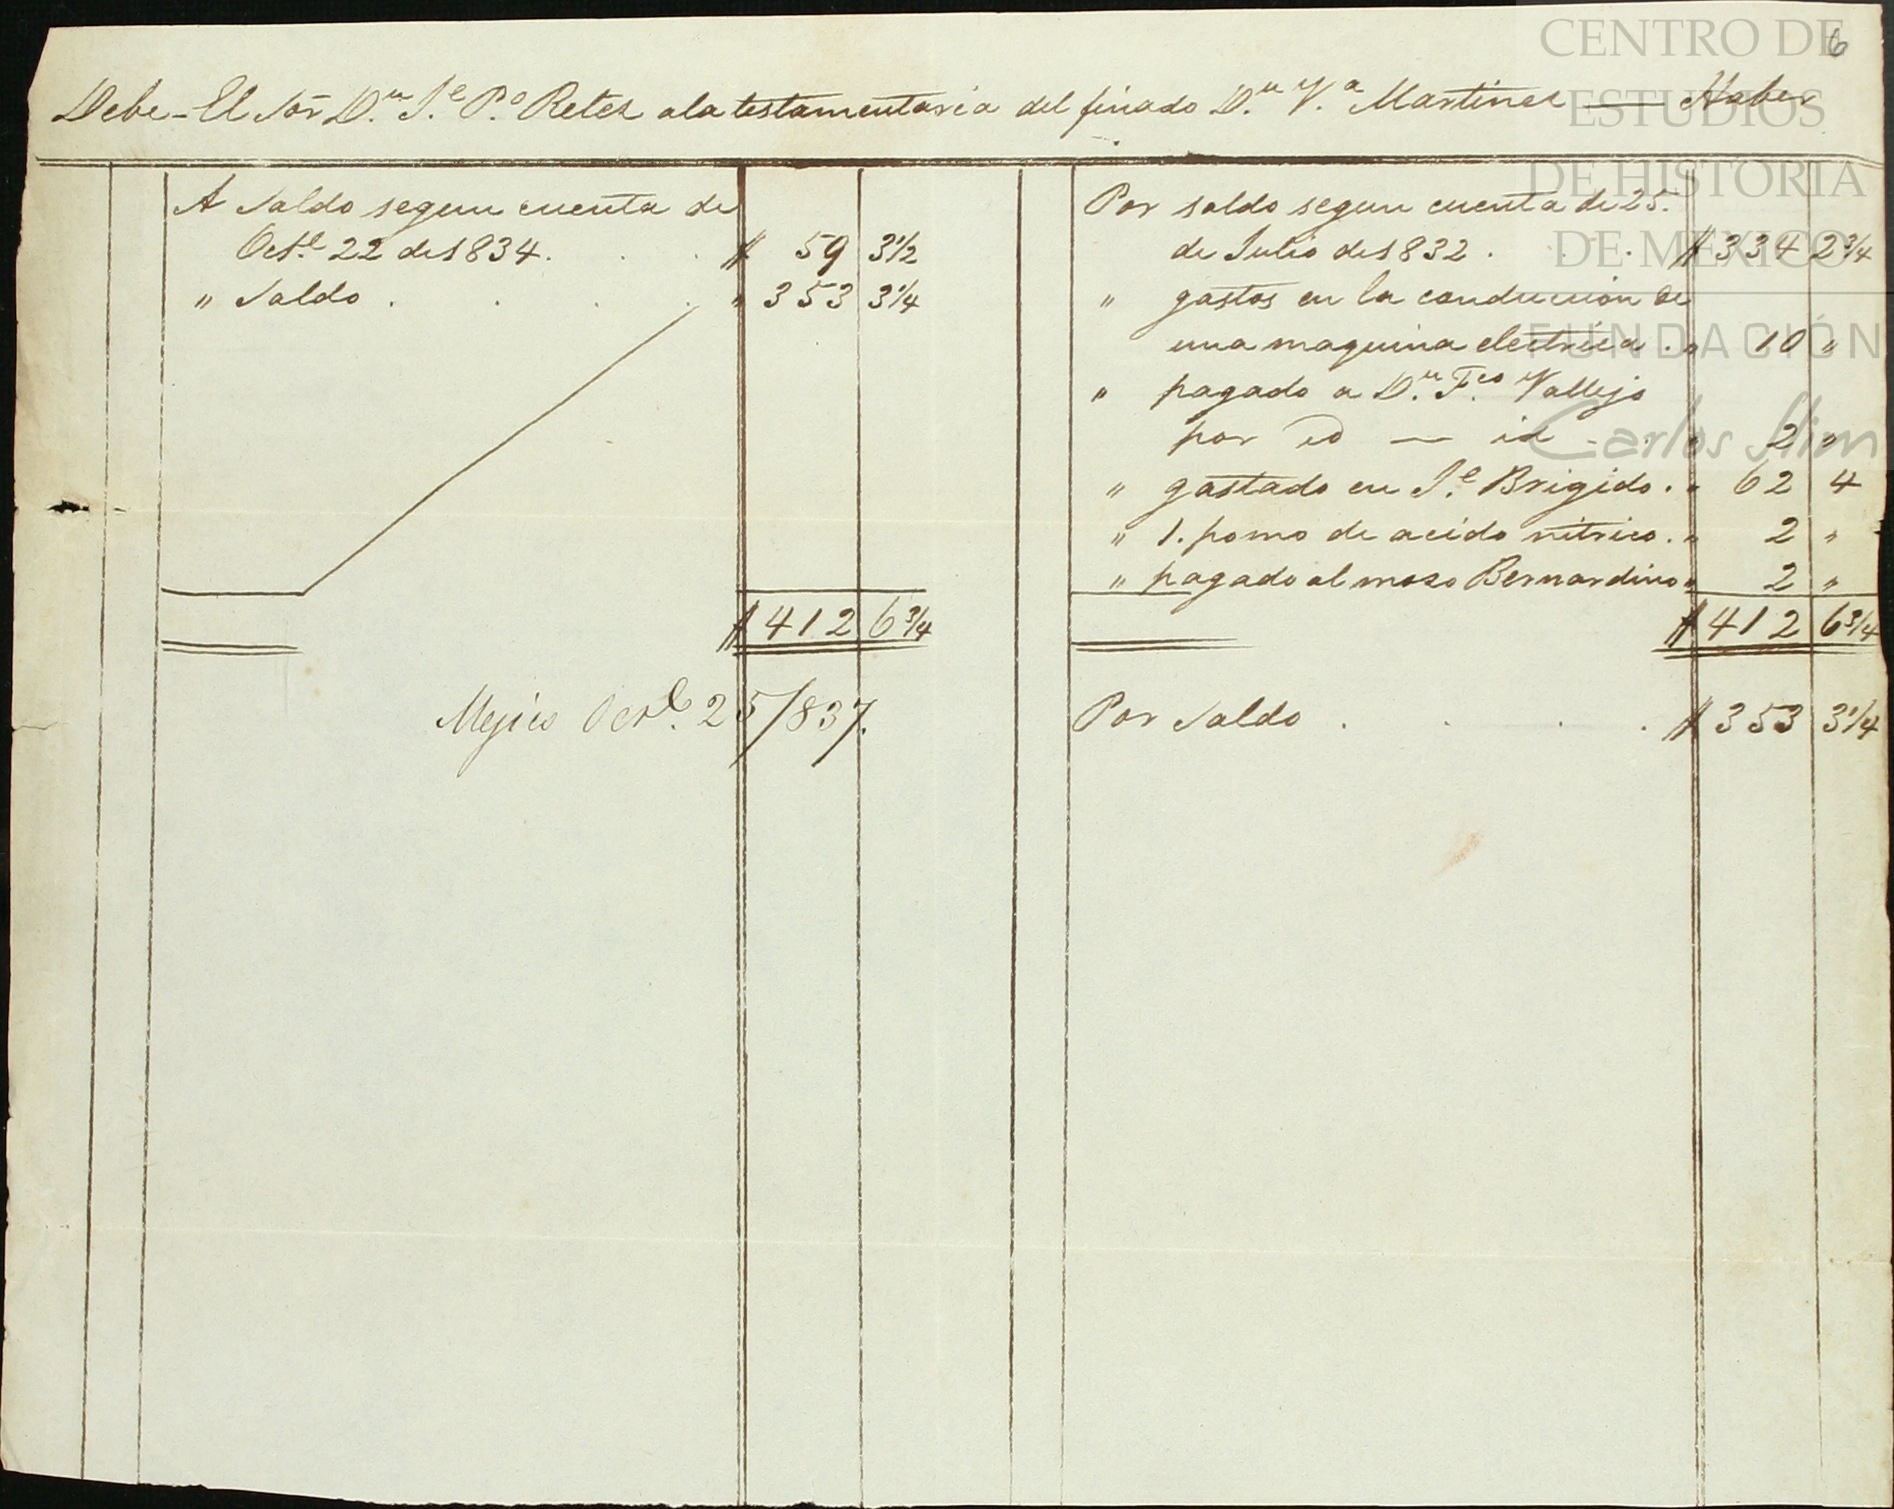 6
Debe - El Sor̃ D.ⁿ J.ᵉ P.º Retes a la testamentaria del finado D.ⁿ V.ª Martinez — Haber
A Saldo segun cuenta de
Oct.ᵉ 22 de 1834. . . $ 59 3½
" Saldo . . . . " 353 3¼
$ 412 6¾
Mejico Octᵉ. 25/837.
Por saldo segun cuenta de 25.
de Julio de 1832 . . . $ 334 2¾
" gastos en la conduccion de
una maquina electrica . " 10 "
" pagado a D.ⁿ F.ᶜᵒ Vallejo
por id — id - . " 2 "
" gastado en J.ᵉ Brigido . " 62 4
" 1. pomo de acido nitrico . " 2 "
" pagado al moso Bernardino " 2 "
$ 412 6¾
Por Saldo . . . . $ 353 3¼
CENTRO DE
ESTUDIOS
DE HISTORIA
DE MEXICO
FUNDACIÓN
Carlos Slim